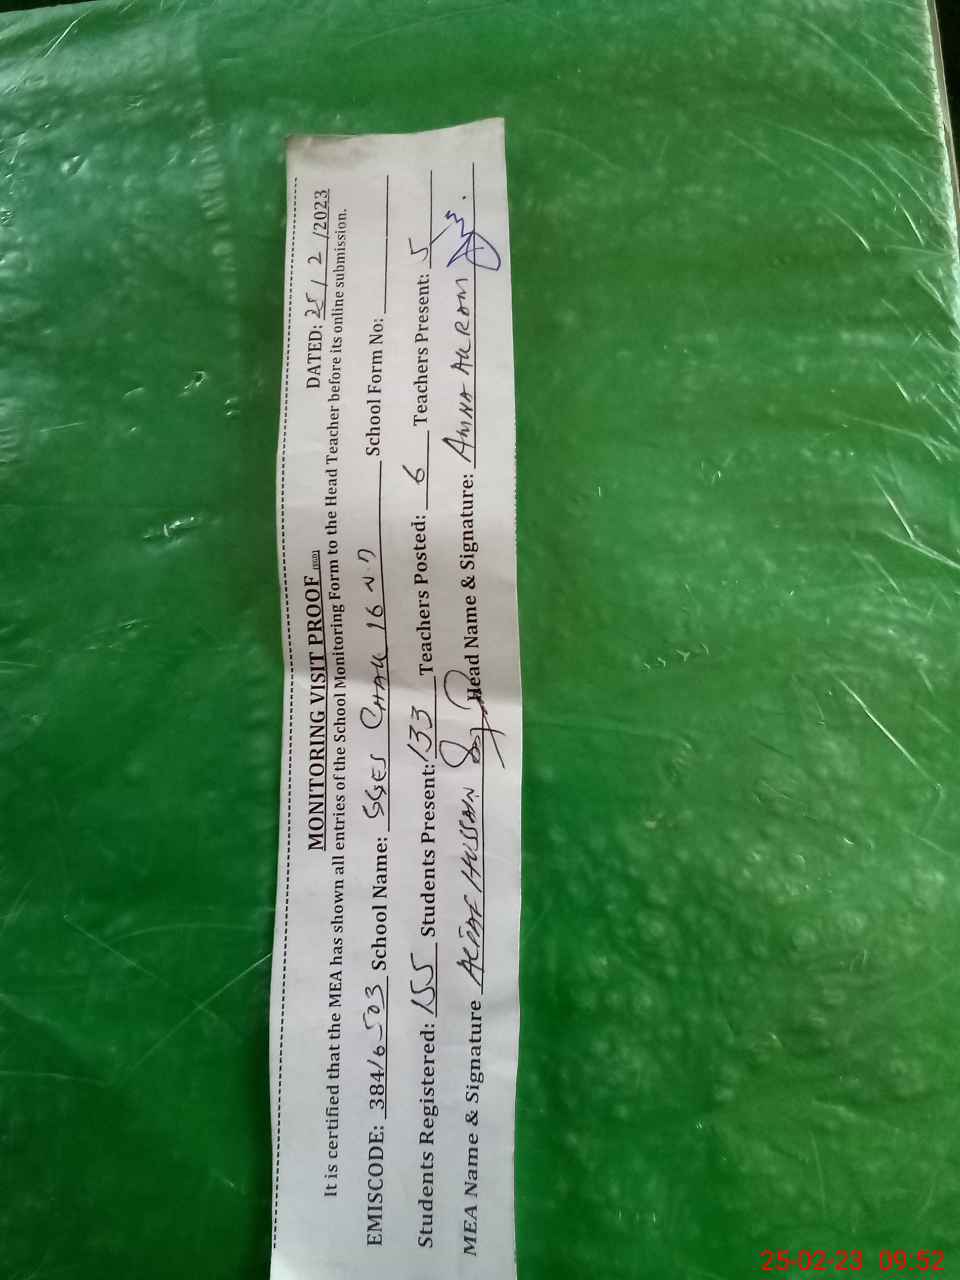 MONITORING VISIT PROOF DATED: 25/2/2023
It is certified that the MEA has shown all entries of the School Monitoring Form to the Head Teacher before its online submission.
EMISCODE: 38416503 School Name: SGES CHAK 16 School Form No:
Students Registered: 155 Students Present: 133 Teachers Posted: 6 Teachers Present: 5
MEA Name & Signature HUSSAIN Head Name & Signature: AMNA AKRAM
25-02-23 09:52